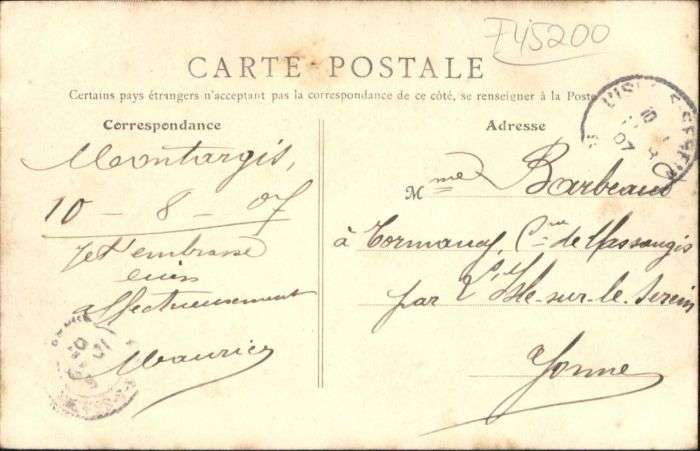 F45200
CARTE POSTALE
Certains pays étrangers n'acceptant pas la correspondance de ce côté, se renseigner à la Poste
Correspondance
Adresse
Montargis,
10 - 8 - 07
Je t'embrasse
affectueusement
Maurice
Mme Barbeaux
à Tormancy, Cne de Massangis
par L'Isle-sur-le-Serein
Yonne
L'ISLE
10
07